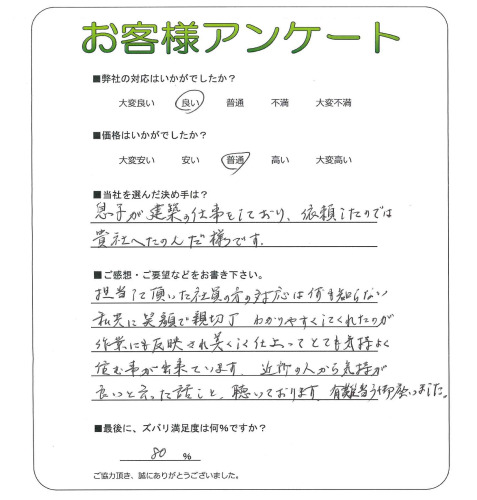 お客様アンケート
■弊社の対応はいかがでしたか？
大変良い 良い 普通 不満 大変不満
■価格はいかがでしたか？
大変安い 安い 普通 高い 大変高い
■当社を選んだ決め手は？
息子が建築の仕事をしており、依頼したのでは
貴社へたのんだ様です.
■ご感想・ご要望などをお書き下さい。
担当して頂いた社員の方の対応は何も知らない
私共に笑顔で親切丁 わかりやすくしてくれたのが
作業にも反映され美しく仕上ってとても気持よく
住む事が出来ています. 近所の人から気持が
良いと云った話こと、聴いております. 有難う御座いました。
■最後に、ズバリ満足度は何%ですか？
80 %
ご協力頂き、誠にありがとうございました。